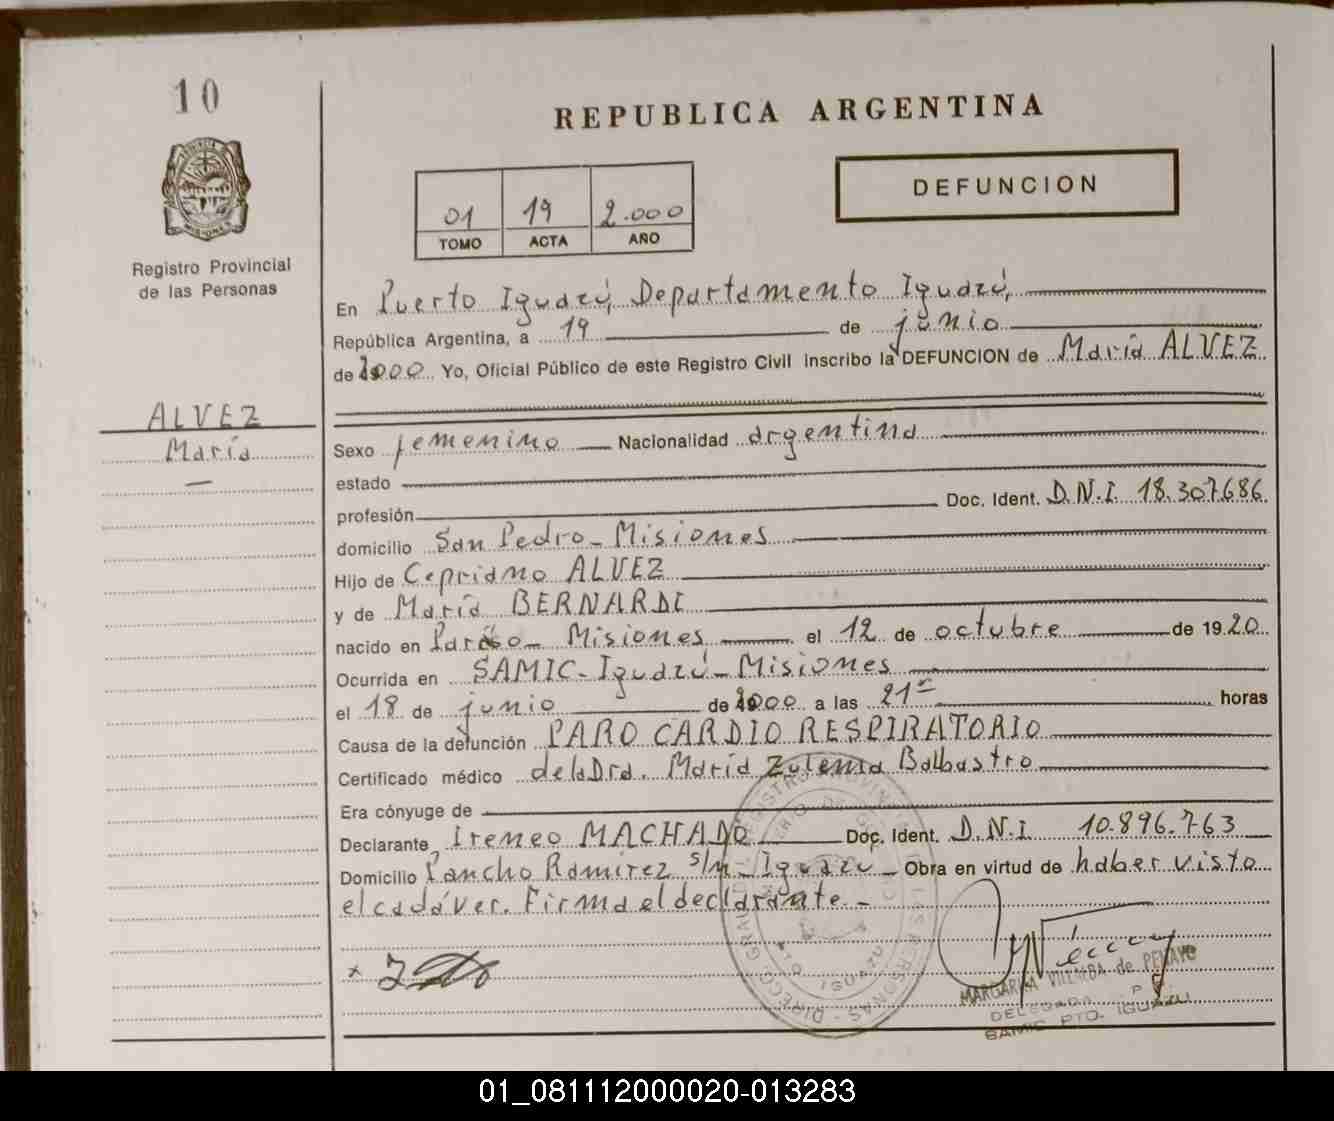 10
REPUBLICA ARGENTINA
DEFUNCION
01 19 2.000
TOMO ACTA AÑO
Registro Provincial
de las Personas
ALVEZ
María
En Puerto Iguazú, Departamento Iguazú,
República Argentina, a 19 de junio
de 2000 Yo, Oficial Público de este Registro Civil inscribo la DEFUNCION de María ALVEZ
Sexo femenino Nacionalidad argentina
estado
profesión Doc. Ident. D.N.I. 18.307.686
domicilio San Pedro - Misiones
Hijo de Cepriano ALVEZ
y de María BERNARDI
nacido en - Misiones el 12 de octubre de 1920
Ocurrida en SAMIC - Iguazú - Misiones
el 18 de junio de 2000 a las 21 horas
Causa de la defunción PARO CARDIO RESPIRATORIO
Certificado médico de la Dra. María Zulema Balbastro
Era cónyuge de
Declarante Ireneo MACHADO Doc. Ident. D.N.I 10.896.763
Domicilio Pancho Ramirez s/n - Iguazu - Obra en virtud de haber visto
el cadáver. Firma el declarante. -
MARGARITA VILLALBA de PENAYO
DELEGADA
SAMIC PTO. IGUAZU
01_081112000020-013283